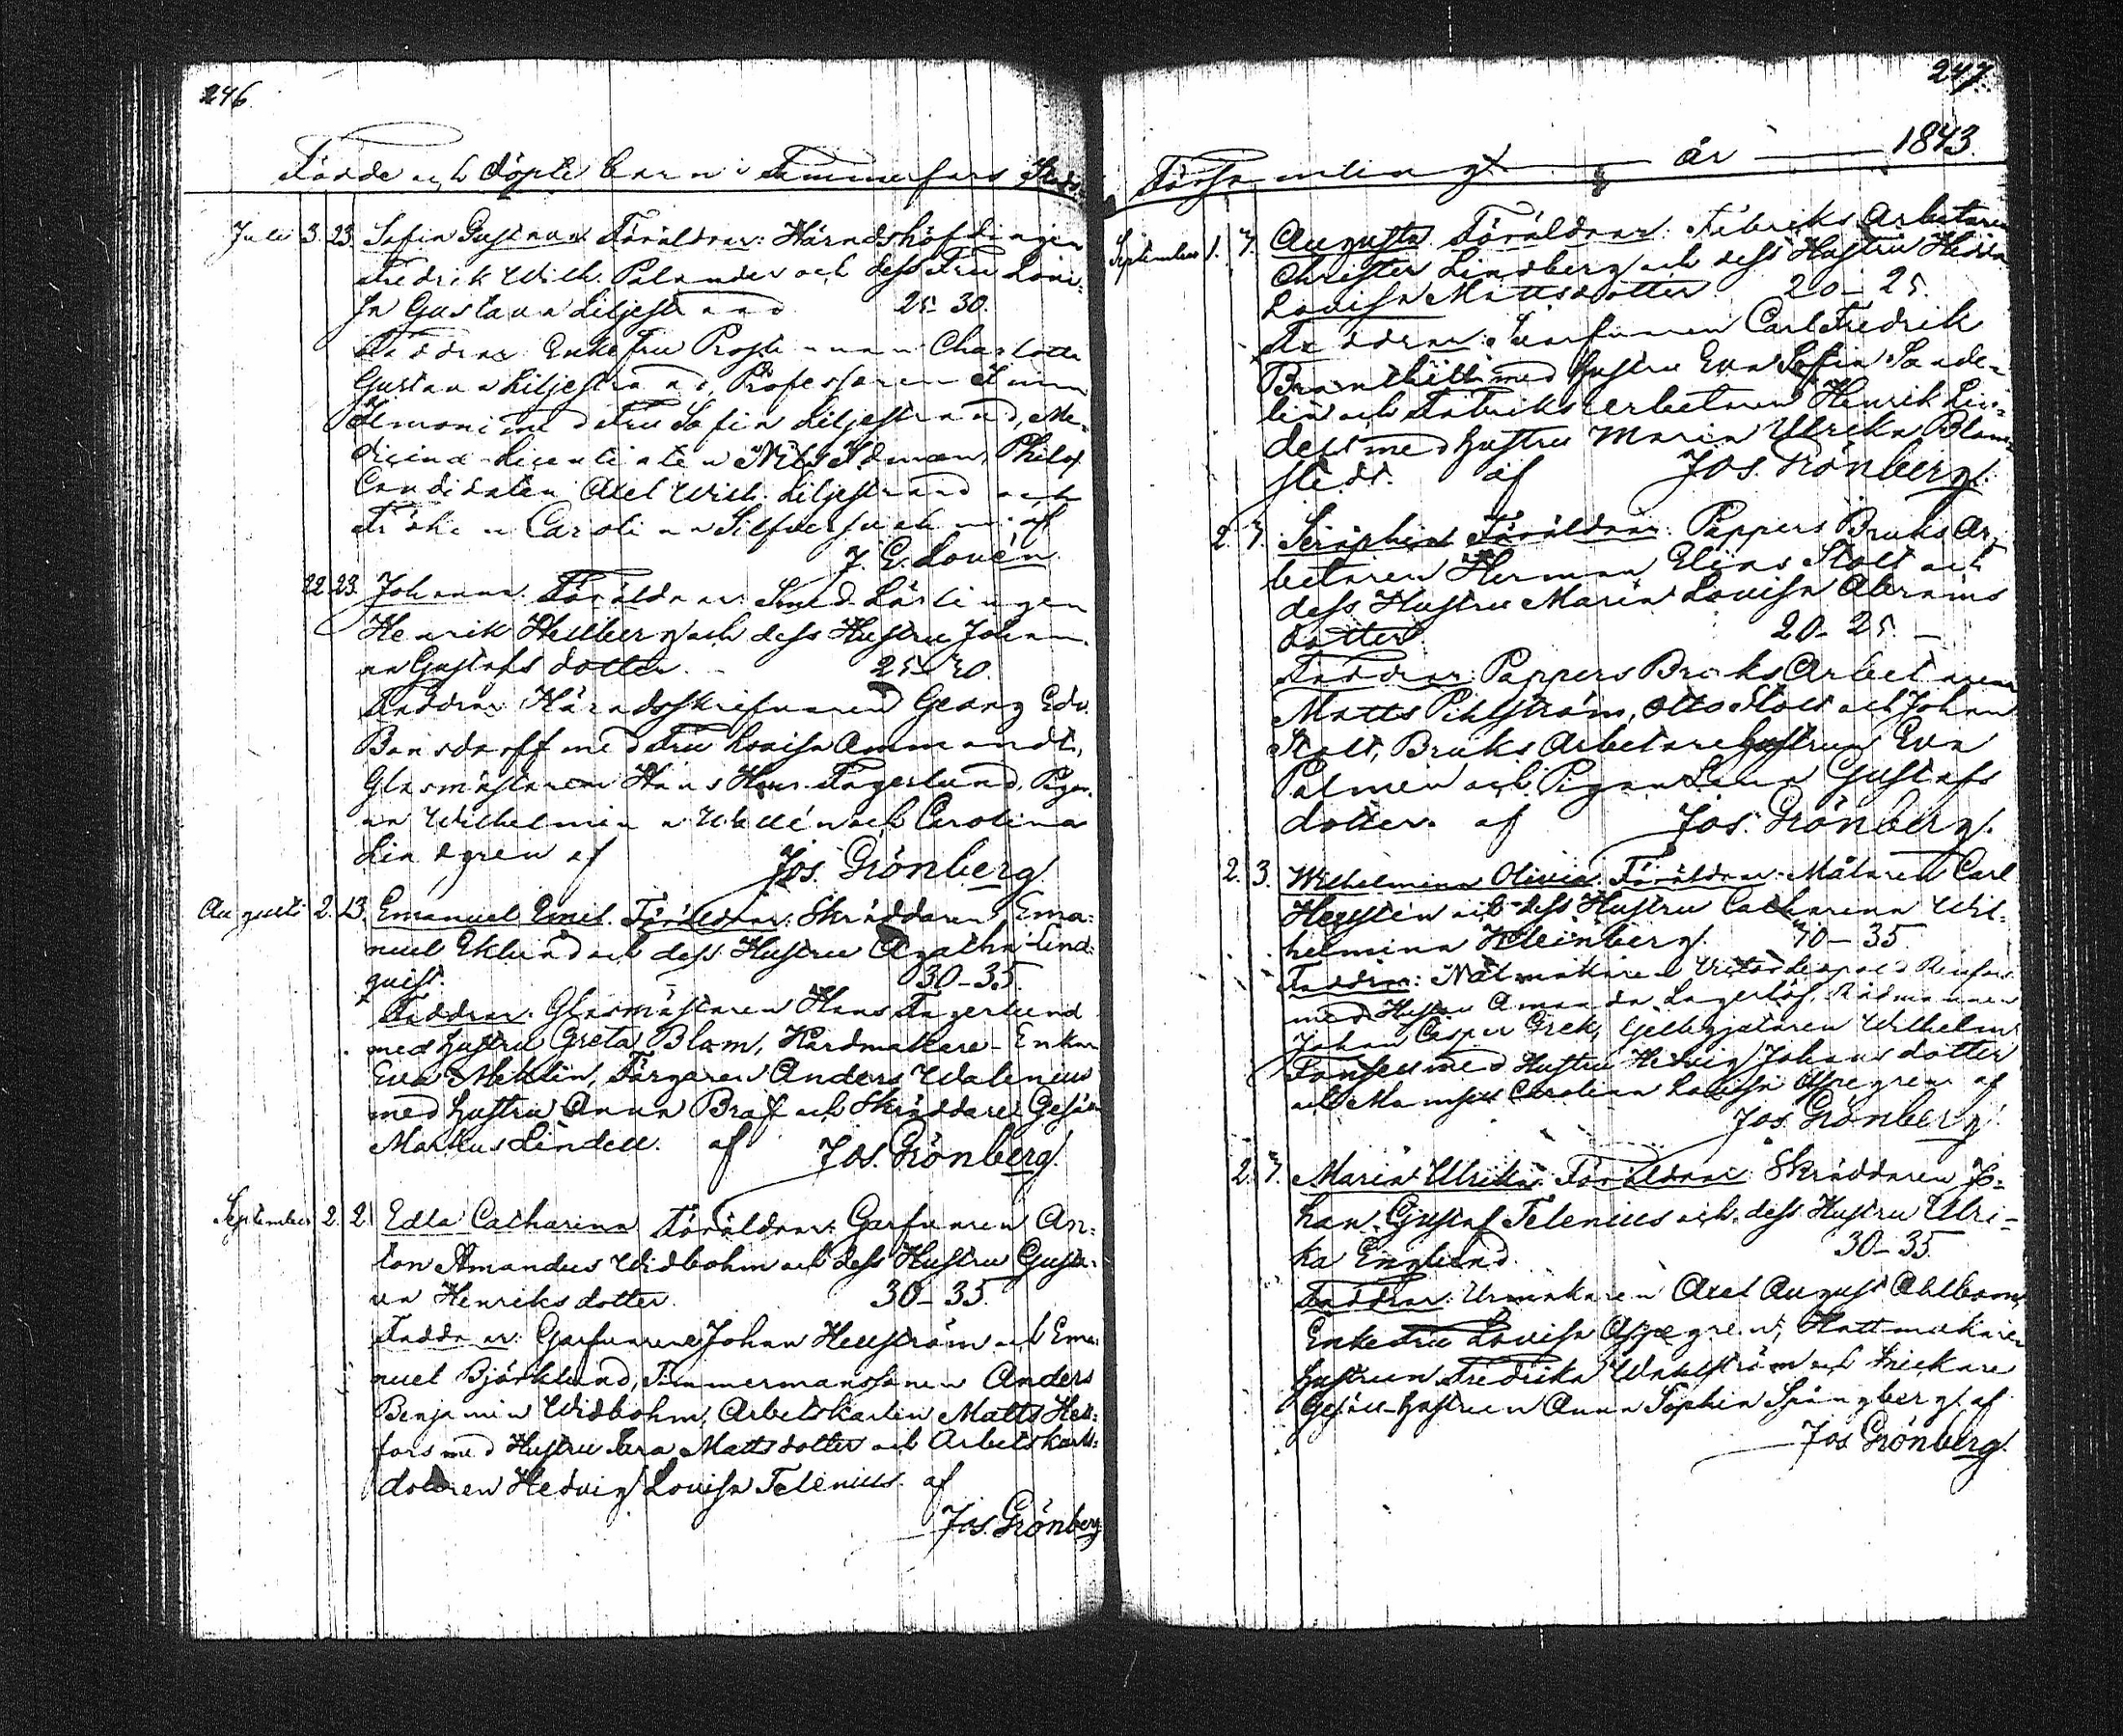 246
Födde och döpte barn i Tammerfors Stads
Juli 3. 23. Sofia Gustava. Föräldrar: Häradshöfdingen
Fredrik Wilh. Palander och dess Fru Loui-
sa Gustava Liljestrand 25-30.
Faddrar: Enkefru Prostinnan Charlotta
Gustava Liljestrand, Professoren
Ilmoni med Fru Sofia Liljestrand, Me-
dicine-Licentiaten Nils Idman, Philos.
Candidaten Axel Wilh. Liljestrand och
Fröken Carolina af
J. E. Lovén
22. 23. Johanna. Föräldrar: Smeds Lärlingen
Henrik Hellberg och dess Hustru Johan-
na Gustafsdotter. 25-30.
Faddrar: Häradsskrifvaren Georg Edv.
Bonsdorff med Fru Lovisa Ammondt,
Glasmästaren Hans Henr. Fagerlund, Pigor-
na Wilhelmina och Carolina
Lindgren af
Jos. Grönberg.
Augusti 2. 13. Emanuel Emil. Föräldrar: Skräddaren Ema-
nuel Eklund och dess Hustru Agatha Lind-
quist. 30-35.
Faddrar: Glasmästaren Hans Fagerlund
med Hustru Greta Blom, Enkan
Eva Meklin, Färgaren Anders Walenius
med hustru Anna Braf och Skräddare Gesällen
Markus Lindell. af Jos. Grönberg.
September 2. 2. Edla Catharina Föräldrar: Garfvaren An-
ton Amandus Widbohm och dess Hustru Gusta-
va Henriksdotter. 30-35.
Faddrar: Garfvarene Johan Hellström och Ema-
nuel Björklund, Timmermanssonen Anders
Benjamin Widbohm, Arbetskarlen Matts Hell-
fors med Hustru Mattsdotter och Arbetskarls-
dottren Hedvig Lovisa Telenius. af
Jos. Grönberg
247.
Församling år 1843.
September 1. 3. Augusta. Föräldrar: Fabriks Arbetaren
Christer Lindberg och dess Hustru Hedda
Lovisa Mattsdotter. 20-25.
Faddrar: Garfvaren Carl Fredrik
med Hustru Eva Sofia Sande-
lin och Fabriksarbetaren Henrik Lin-
dell med hustru Maria Ulrika Blom-
stedt. af Jos. Grönberg.
2. 3. Seraphia Föräldrar: Pappers Bruks Ar-
betaren Herman Elias Stolt och
dess Hustru Maria Lovisa Abrams
dotter. 20-25.
Faddrar: Pappers Bruks Arbetarene
Matts Pihlström, Otto Stolt och Johan
Stolt, Bruks Arbetarehustrun Eva
Palmen och Pigan Lena Gustafs
dotter. af Jos. Grönberg.
2. 3. Wilhelmina Olivia. Föräldrar: Målaren Carl
Hegstén och dess Hustru Catharina Wil-
helmina Kleinberg. 30-35
Faddrar: Nålmakaren Victor Leopold
med Hustru Amanda Lagerlöf, Rådmannen
Johan Casper Grek, Gelbgjutaren Wilhelm
med Hustru Hedvig Johansdotter
och Mamsell Carolina Lovisa Aspegren af
Jos. Grönberg.
2. 3. Maria Ulrika. Föräldrar: Skräddaren Jo-
han Gustaf Telenius och dess Hustru Ulri-
ka Englund. 30-35.
Faddrar: Urmakaren Axel August Ahlbom,
Enkefru Lovisa Aspegren, Hattmakare
hustrun Fredrika Wahlström och Snickare
Gesäll-hustrun Anna Sophia Spångberg. af
Jos. Grönberg.